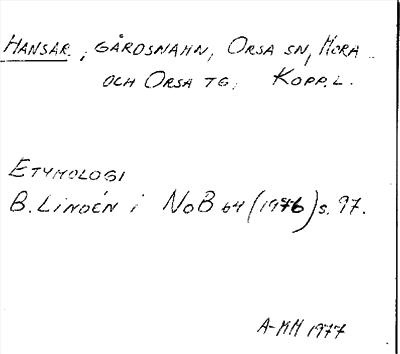 HANSAR, GÅRDSNAMN, ORSA SN, MORA
OCH ORSA TG, KOPP.L.
ETYMOLOGI
B. LINDÉN i NoB 64 (1976) s. 97.
A-MM 1977